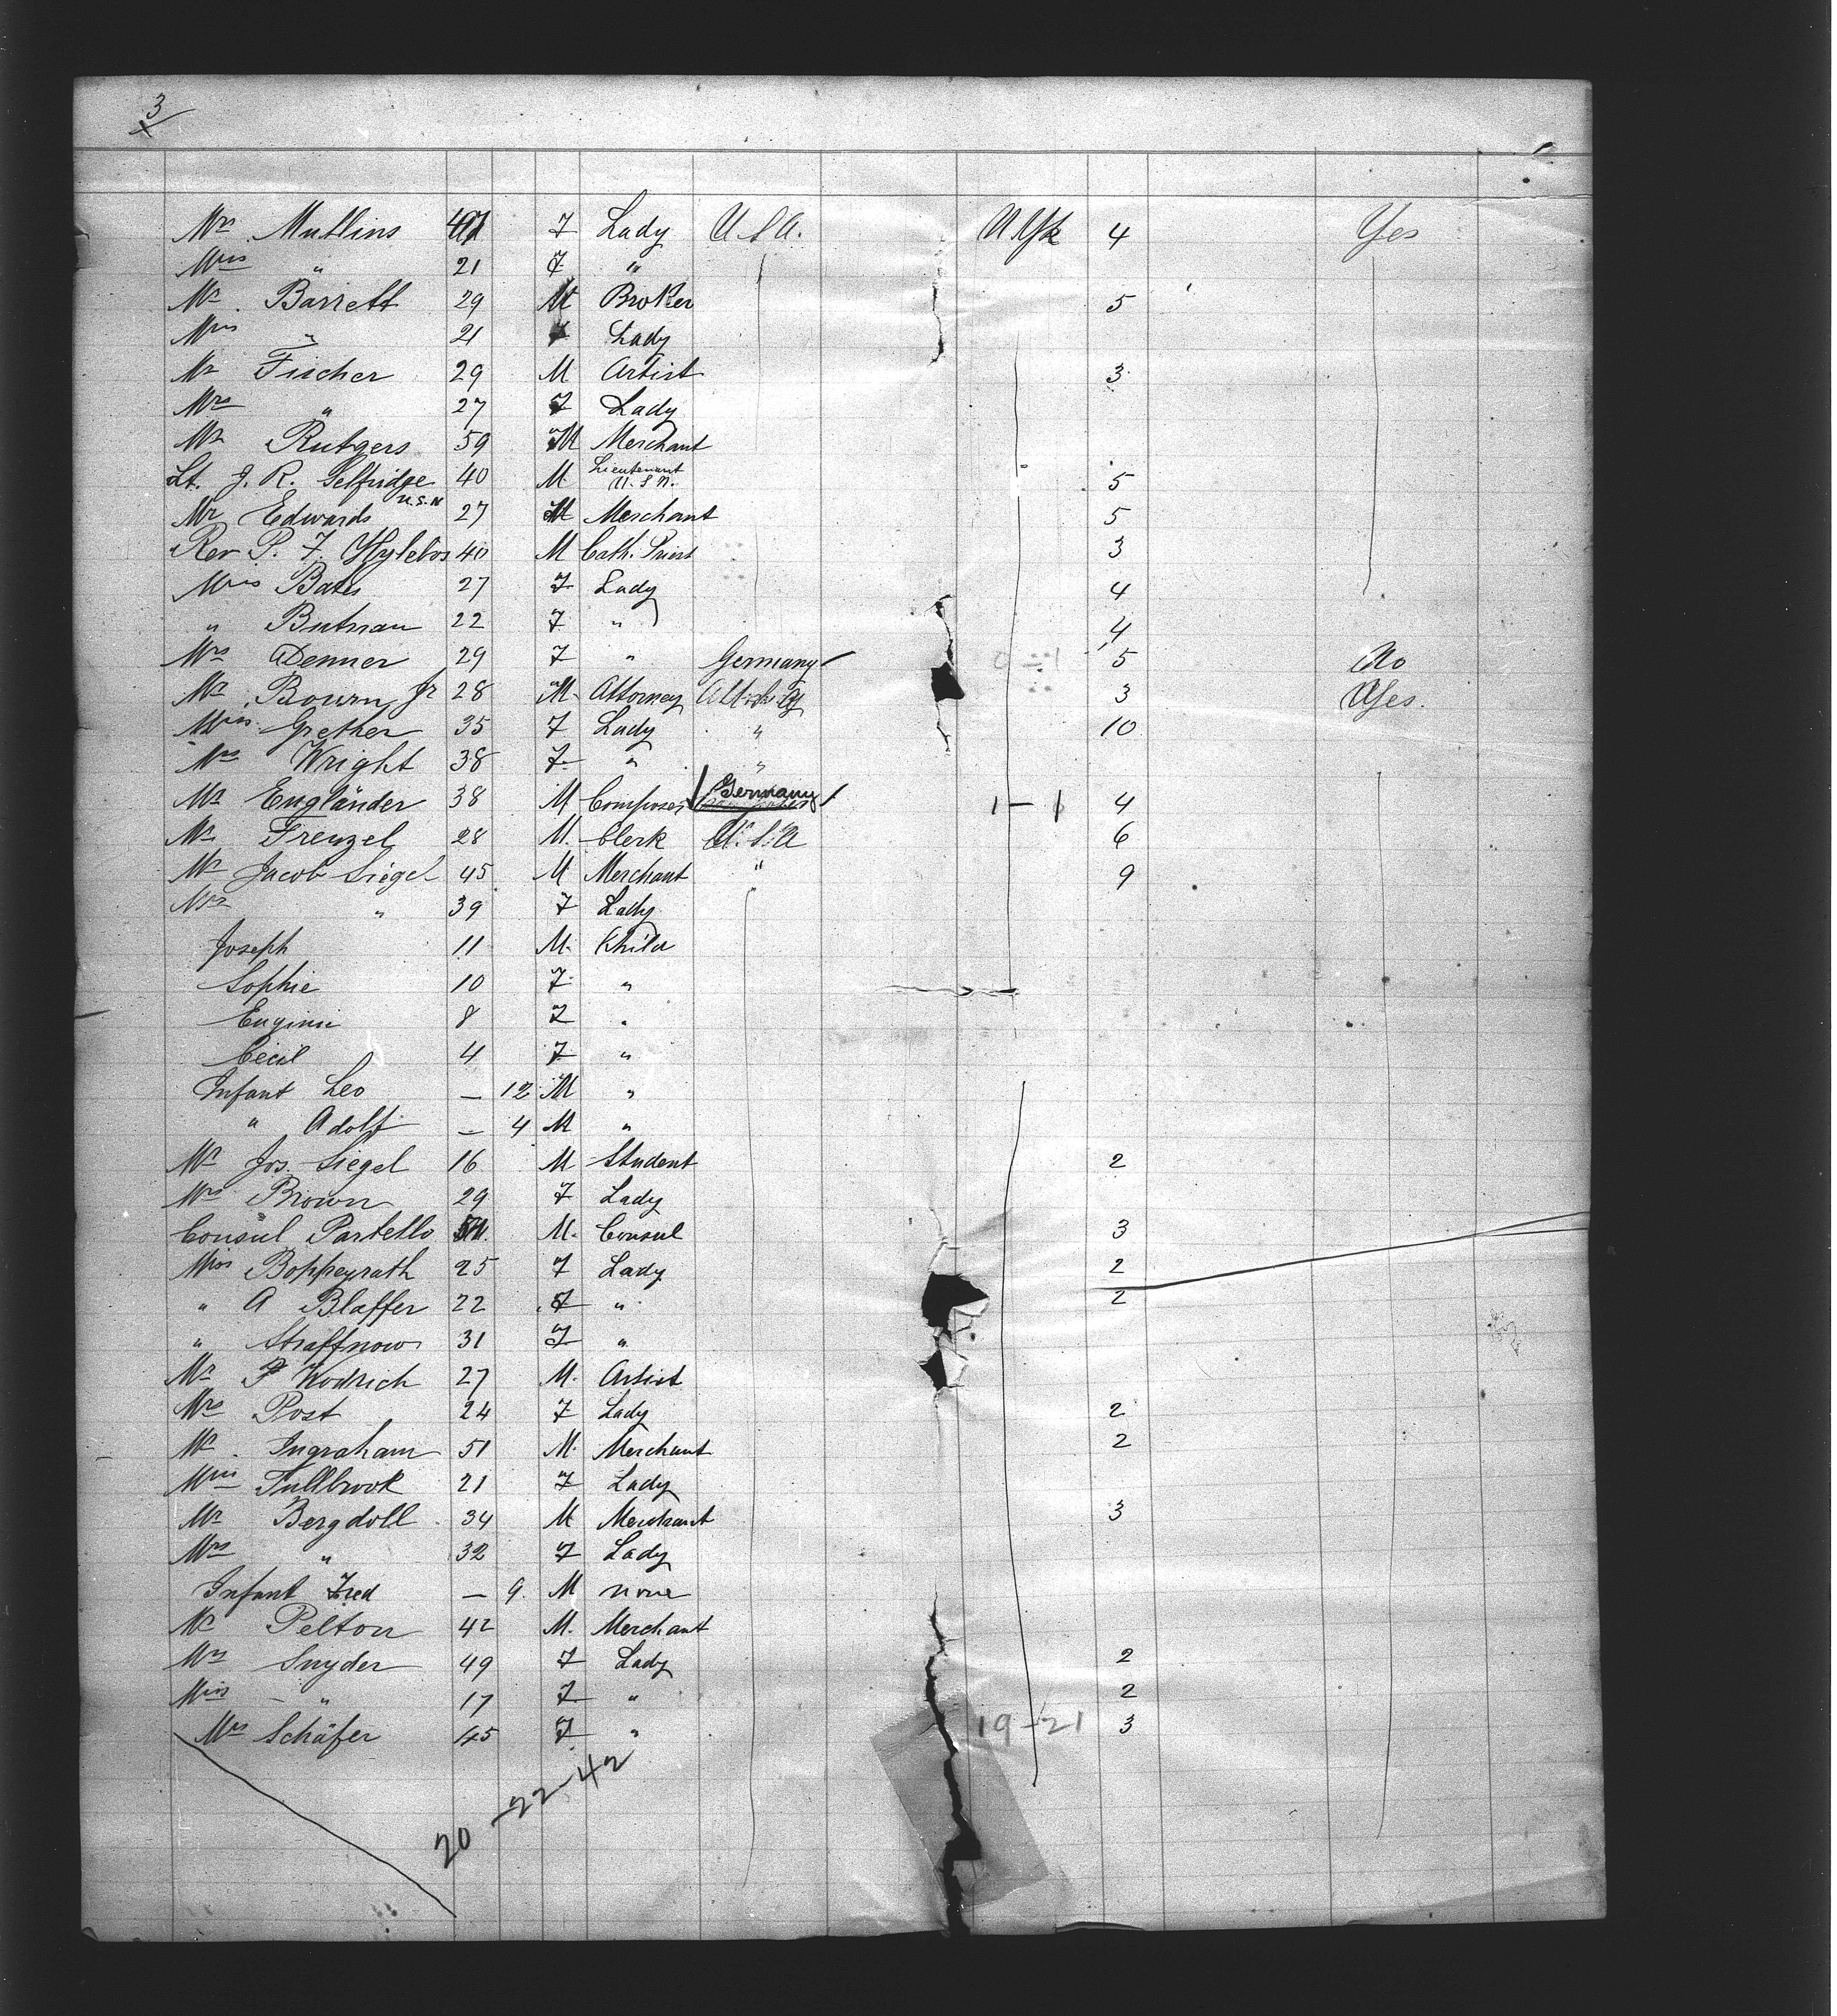 3
Mrs Mullins F Lady U.S.A. N Yk 4 Yes
Miss " 21 F "
Mr Barrett 29 M Broker 5
Mrs " 21 F Lady
Mr Fischer 29 M Artist 3
Mrs " 27 F Lady
Mr Rutgers 59 M Merchant
Lt. J. R. Selfridge U.S.N 40 M Lieutenant U.S.N. 5
Mr Edwards 27 M Merchant 5
Rev P. F. Hylebos 40 M Cath. Priest 3
Miss Bates 27 F Lady 4
" Butman 22 F " 4
Mrs Denner 29 F " Germany 5 No
Mr Bourn Jr 28 M. Attorney 3 Yes.
Miss Grether 35 F Lady " 10
Mrs Wright 38 F " "
Mr Engländer 38 M Composer Germany 1 - 1 4
Mr Frenzel 28 M. Clerk U.S.A 6
Mr Jacob Siegel 45 M Merchant " 9
Mrs " 39 F Lady "
Joseph 11 M. Child
Sophie 10 F "
Eugini 8 F "
Cecil 4 F "
Infant Leo — 12 M "
" Adolf — 4 M "
Mr Jos. Siegel 16 M Student 2
Mrs Brown 29 F Lady
Consul Partello M. Consul 3
Miss Boppeyrath 25 F Lady 2
" A Blaffer 22 F " 2
" Straffnow 31 F "
Mr P Wodrich 27 M. Artist
Mrs Post 24 F Lady 2
Mr Ingraham 51 M. Merchant 2
Miss Fullbrook 21 F Lady
Mr Bergdoll 34 M Merchant 3
Mrs " 32 F Lady
Infant Fred — 9. M none
Mr Pelton 42 M. Merchant
Mrs Snyder 49 F Lady 2
Miss " 17 F " 2
Mrs Schäfer 45 F " 19-21 3
20 - 22 - 42